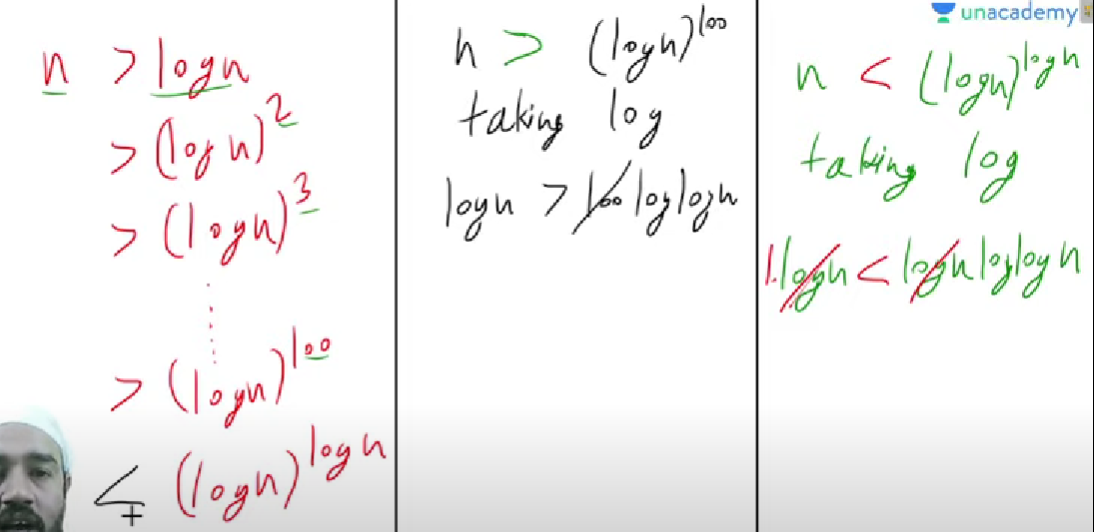 n > logn
> (logn)^2
> (logn)^3
> (logn)^100
< (logn)^logn
n > (logn)^100
taking log
logn > 100 loglogn
unacademy
n < (logn)^logn
taking log
1.logn < logn loglogn